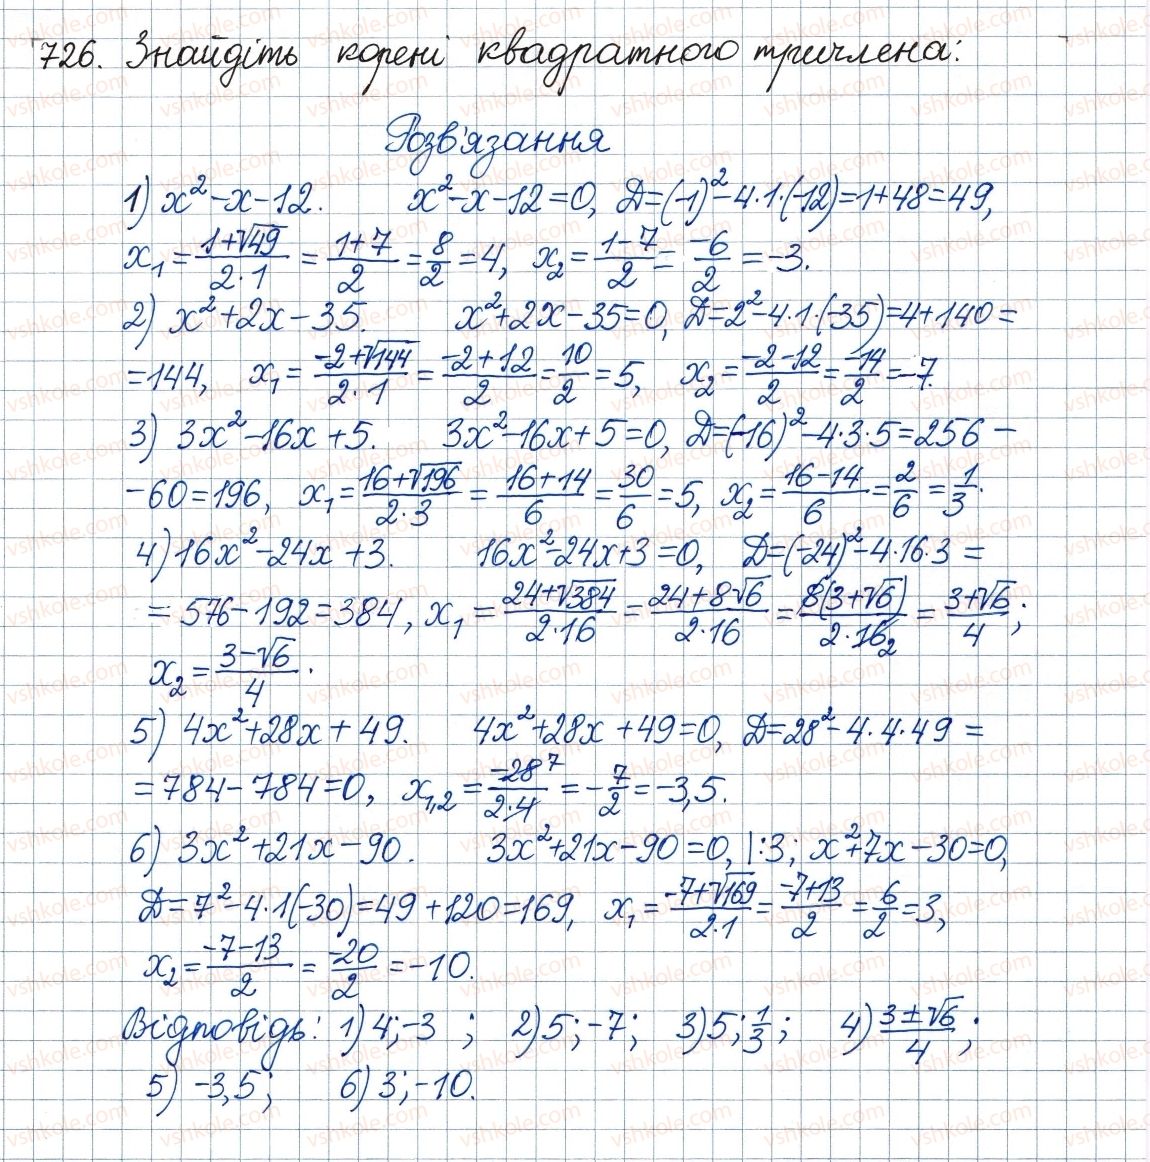 726. Знайдіть корені квадратного тричлена:
Розв'язання
1) x²-x-12. x²-x-12=0, D=(-1)²-4·1·(-12)=1+48=49,
x₁=(1+√49)/(2·1)=(1+7)/2=8/2=4, x₂=(1-7)/2=-6/2=-3.
2) x²+2x-35. x²+2x-35=0, D=2²-4·1·(-35)=4+140=
=144, x₁=(-2+√144)/(2·1)=(-2+12)/2=10/2=5, x₂=(-2-12)/2=-14/2=-7.
3) 3x²-16x+5. 3x²-16x+5=0, D=(-16)²-4·3·5=256-
-60=196, x₁=(16+√196)/(2·3)=(16+14)/6=30/6=5, x₂=(16-14)/6=2/6=1/3.
4) 16x²-24x+3. 16x²-24x+3=0, D=(-24)²-4·16·3=
=576-192=384, x₁=(24+√384)/(2·16)=(24+8√6)/(2·16)=8(3+√6)/(2·16₂)=(3+√6)/4;
x₂=(3-√6)/4.
5) 4x²+28x+49. 4x²+28x+49=0, D=28²-4·4·49=
=784-784=0, x₁,₂=-28⁷/(2·4)=-7/2=-3,5.
6) 3x²+21x-90. 3x²+21x-90=0, |:3; x²+7x-30=0,
D=7²-4·1(-30)=49+120=169, x₁=(-7+√169)/(2·1)=(-7+13)/2=6/2=3,
x₂=(-7-13)/2=-20/2=-10.
Відповідь: 1) 4;-3 ; 2) 5;-7; 3) 5;1/3; 4) (3±√6)/4;
5) -3,5; 6) 3;-10.